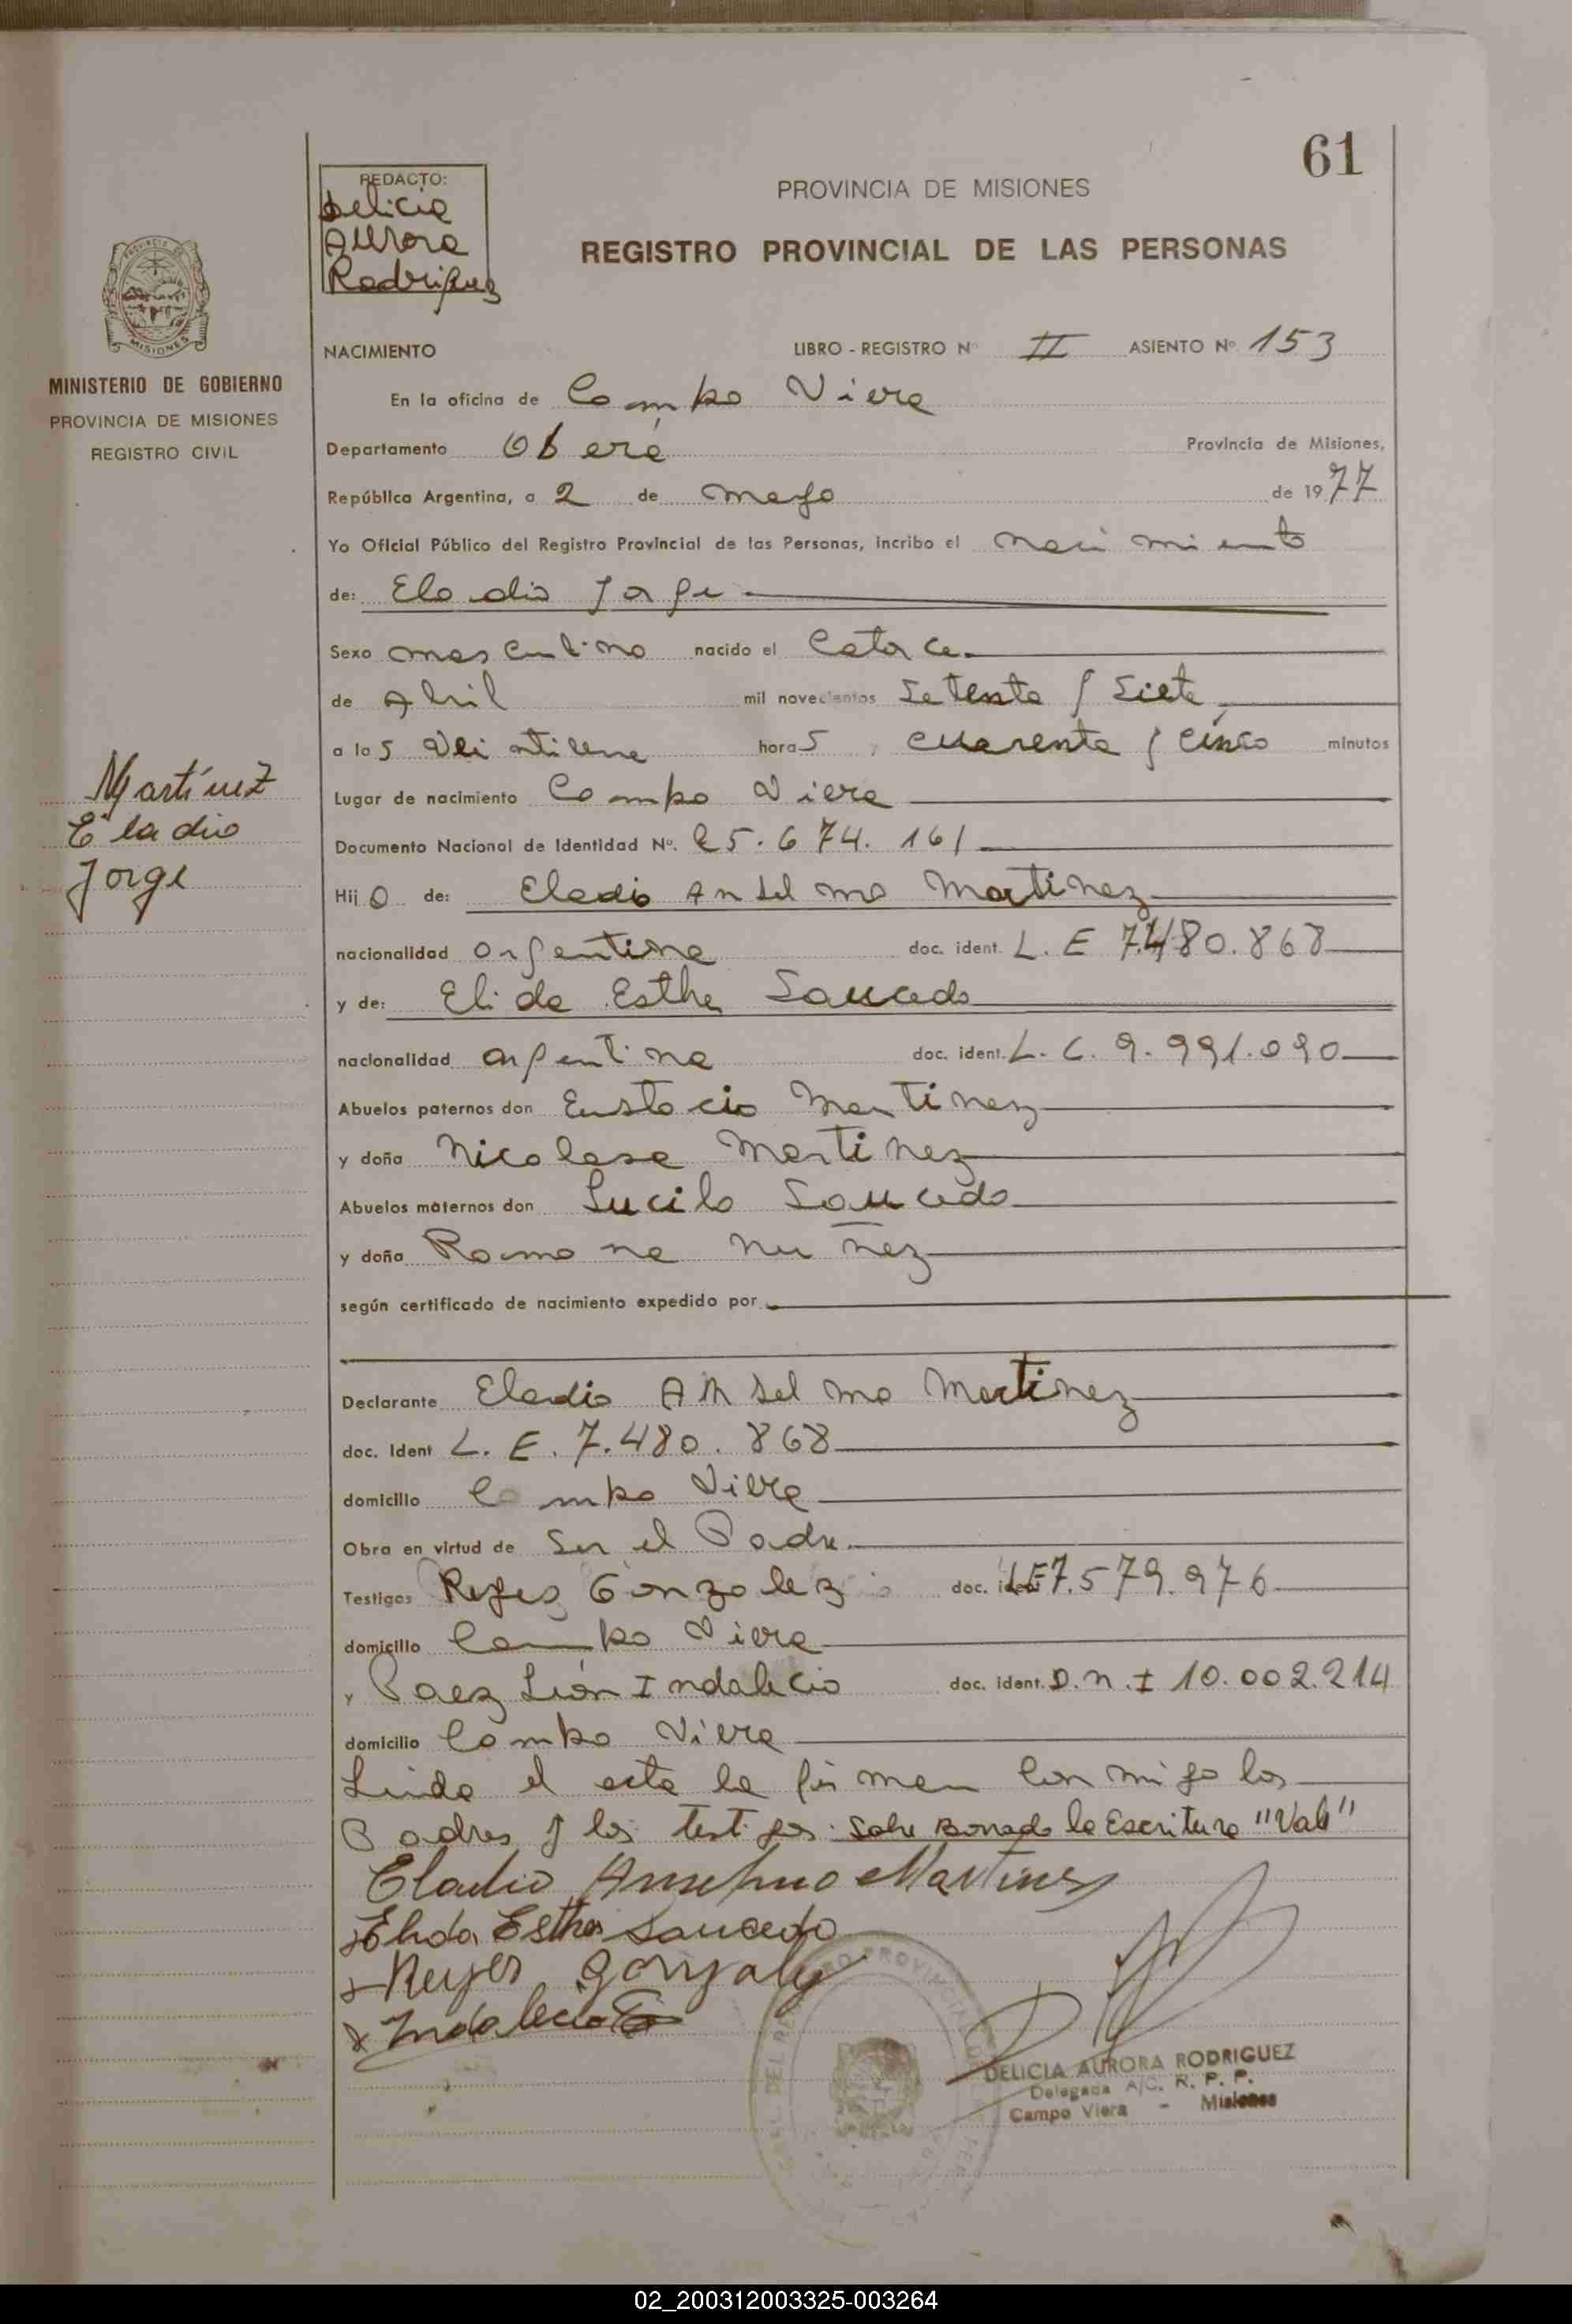 61
REDACTO:
Delicia
Aurora
Rodriguez
PROVINCIA DE MISIONES
REGISTRO PROVINCIAL DE LAS PERSONAS
MISIONES
MINISTERIO DE GOBIERNO
PROVINCIA DE MISIONES
REGISTRO CIVIL
NACIMIENTO LIBRO - REGISTRO Nº II ASIENTO Nº 153
En la oficina de Campo Viera
Departamento Oberá Provincia de Misiones,
República Argentina, a 2 de mayo de 1977
Yo Oficial Público del Registro Provincial de las Personas, incribo el nacimiento
de: Eladio Jorge
Sexo masculino nacido el Catorce
de Abril mil novecientos Setenta y Siete
a las Veintiune horas, cuarenta y cinco minutos
Martínez
Eladio
Jorge
Lugar de nacimiento Campo Viera
Documento Nacional de Identidad Nº. 25.674.161
Hijo de: Eladio Anselmo Martinez
nacionalidad argentina doc. ident. L.E 7.480.868
y de: Elida Esther Saucedo
nacionalidad argentina doc. ident. L.C. 9.991.090
Abuelos paternos don Eustacio Martinez
y doña Nicolasa Martinez
Abuelos maternos don Lucilo Saucedo
y doña Ramona Nuñez
según certificado de nacimiento expedido por
Declarante Eladio Anselmo Martinez
doc. Ident L.E. 7.480.868
domicilio Campo Viera
Obra en virtud de Ser el Padre
Testigos Reyes Gonzalez doc. ident LE 7.579.976
domicilio Campo Viera
y Paez León Indalecio doc. ident. D.N.I 10.002.214
domicilio Campo Viera
Leida el acta la firman conmigo los
Padres y los testigos. Sobre Borrado la Escritura "Vale"
Eladio Anselmo Martinez
Elida Esther Saucedo
x Reyes Gonzalez
x Indalecio
DELICIA AURORA RODRIGUEZ
Delegada A/C. R. P. P.
Campo Viera - Misiones
02_200312003325-003264